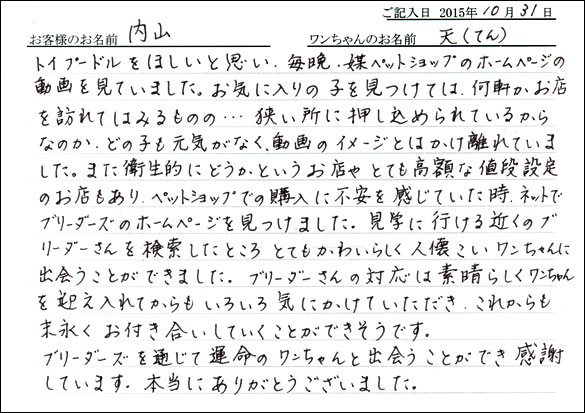 ご記入日 2015年10月31日
お客様のお名前 内山 ワンちゃんのお名前 天(てん)
トイプードルをほしいと思い、毎晩、媒ペットショップのホームページの
動画を見ていました。お気に入りの子を見つけては、何軒かお店
を訪れてはみるものの… 狭い所に押し込められているから
なのか、どの子も元気がなく、動画のイメージとはかけ離れていま
した。また衛生的にどうか、というお店や とても高額な値段設定
のお店もあり、ペットショップでの購入に不安を感じていた時、ネットで
ブリーダーズのホームページを見つけました。見学に行ける近くのブ
リーダーさんを検索したところ とてもかわいらしく人懐こいワンちゃんに
出会うことができました。ブリーダーさんの対応は素晴らしくワンちゃん
を迎え入れてからもいろいろ気にかけていただき、これからも
末永く お付き合いしていくことができそうです。
ブリーダーズを通じて運命のワンちゃんと出会うことができ 感謝
しています。本当にありがとうございました。